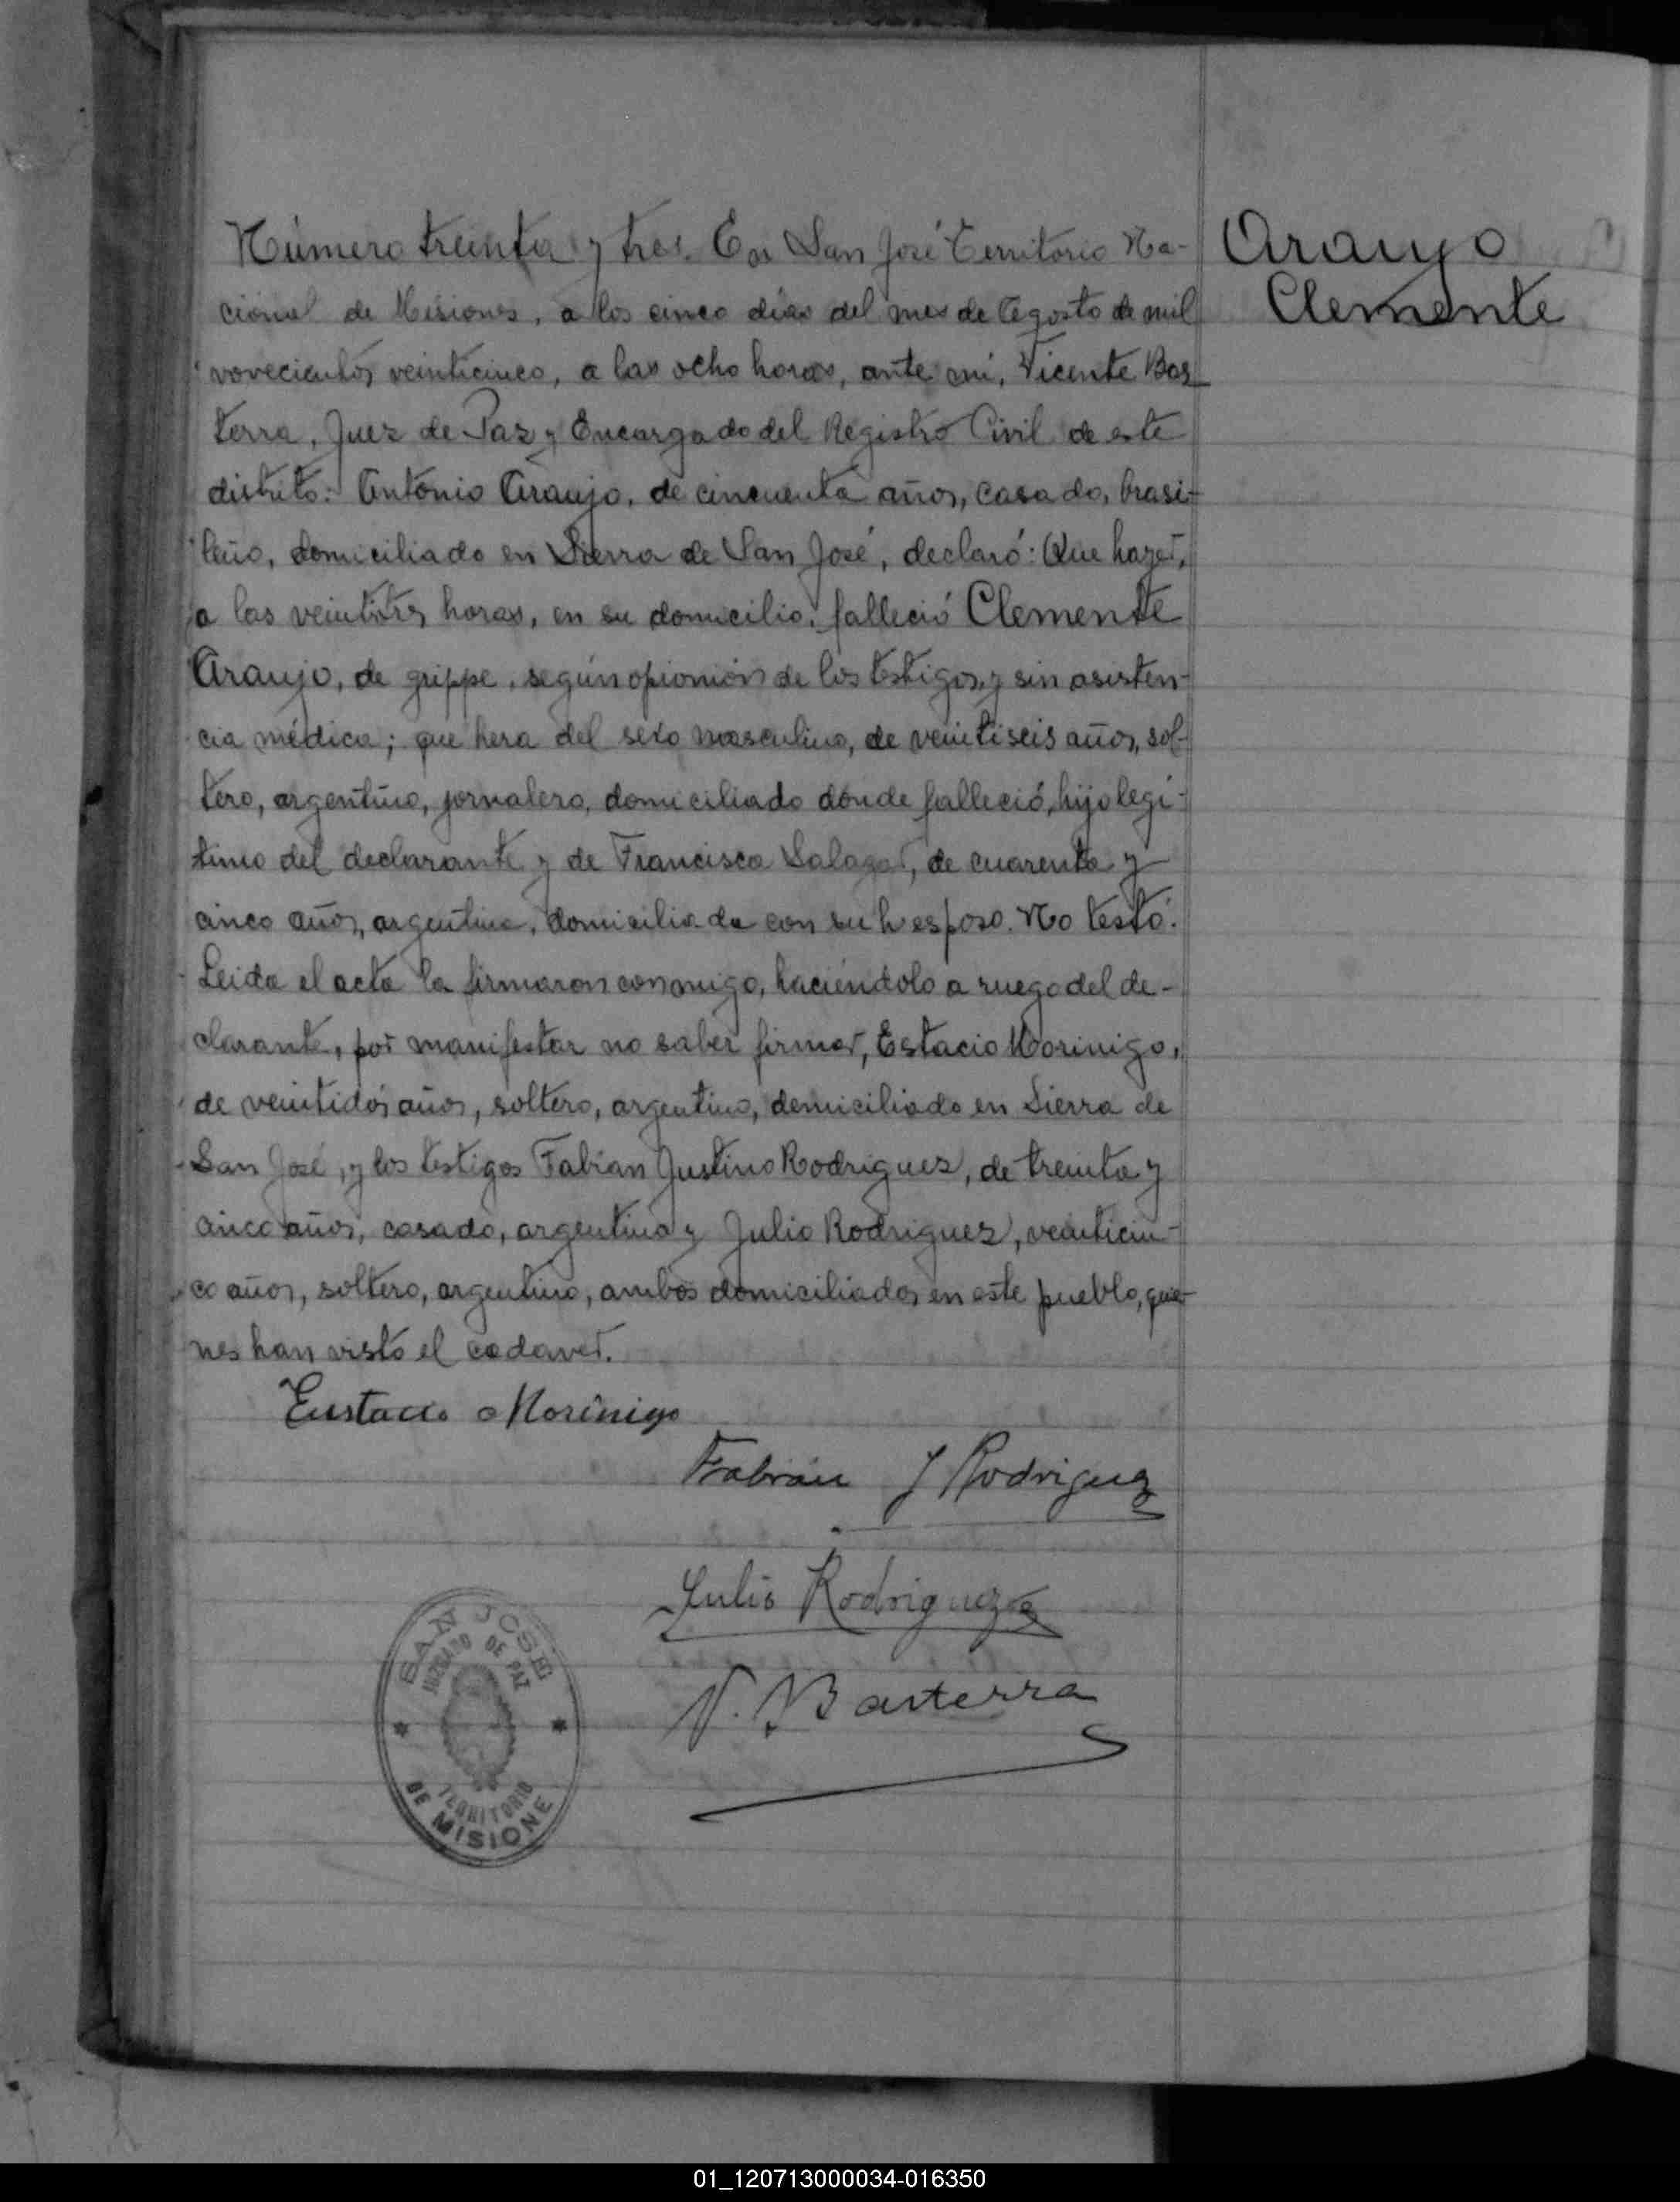 Número treinta y tres. En San José Territorio Na-
cional de Misiones, a los cinco días del mes de Agosto de mil
novecientos veinticinco, a las ocho horas, ante mí, Vicente Bas-
terra, Juez de Paz y Encargado del Registro Civil de este
distrito: Antonio Araujo, de cincuenta años, casado, brasi-
leño, domiciliado en Sierra de San José, declaró: Que hayer,
a las veintitrés horas, en su domicilio, falleció Clemente
Araujo, de grippe, según opionión de los testigos, y sin asisten-
cia médica; que hera del sexo masculino, de veintiseis años, sol-
tero, argentino, jornalero, domiciliado dónde falleció, hijo legí-
timo del declarante y de Francisca Salazar, de cuarenta y
cinco años, argentina, domiciliada con su esposo. No testó.
Leida el acta la firmaron conmigo, haciéndolo a ruego del de-
clarante, por manifestar no saber firmar, Estacio Morinigo,
de veintidós años, soltero, argentino, domiciliado en Sierra de
San José, y los testigos Fabian Justino Rodriguez, de treinta y
cinco años, casado, argentino y Julio Rodriguez, veinticin-
co años, soltero, argentino, ambos domiciliados en este pueblo, quie-
nes han visto el cadaver.
Eustacio Morinigo
Fabián J Rodriguez
Julio Rodriguez
V. Basterra
SAN JOSE
JUZGADO DE PAZ
TERRITORIO
DE MISIONE
Araujo
Clemente
01_120713000034-016350